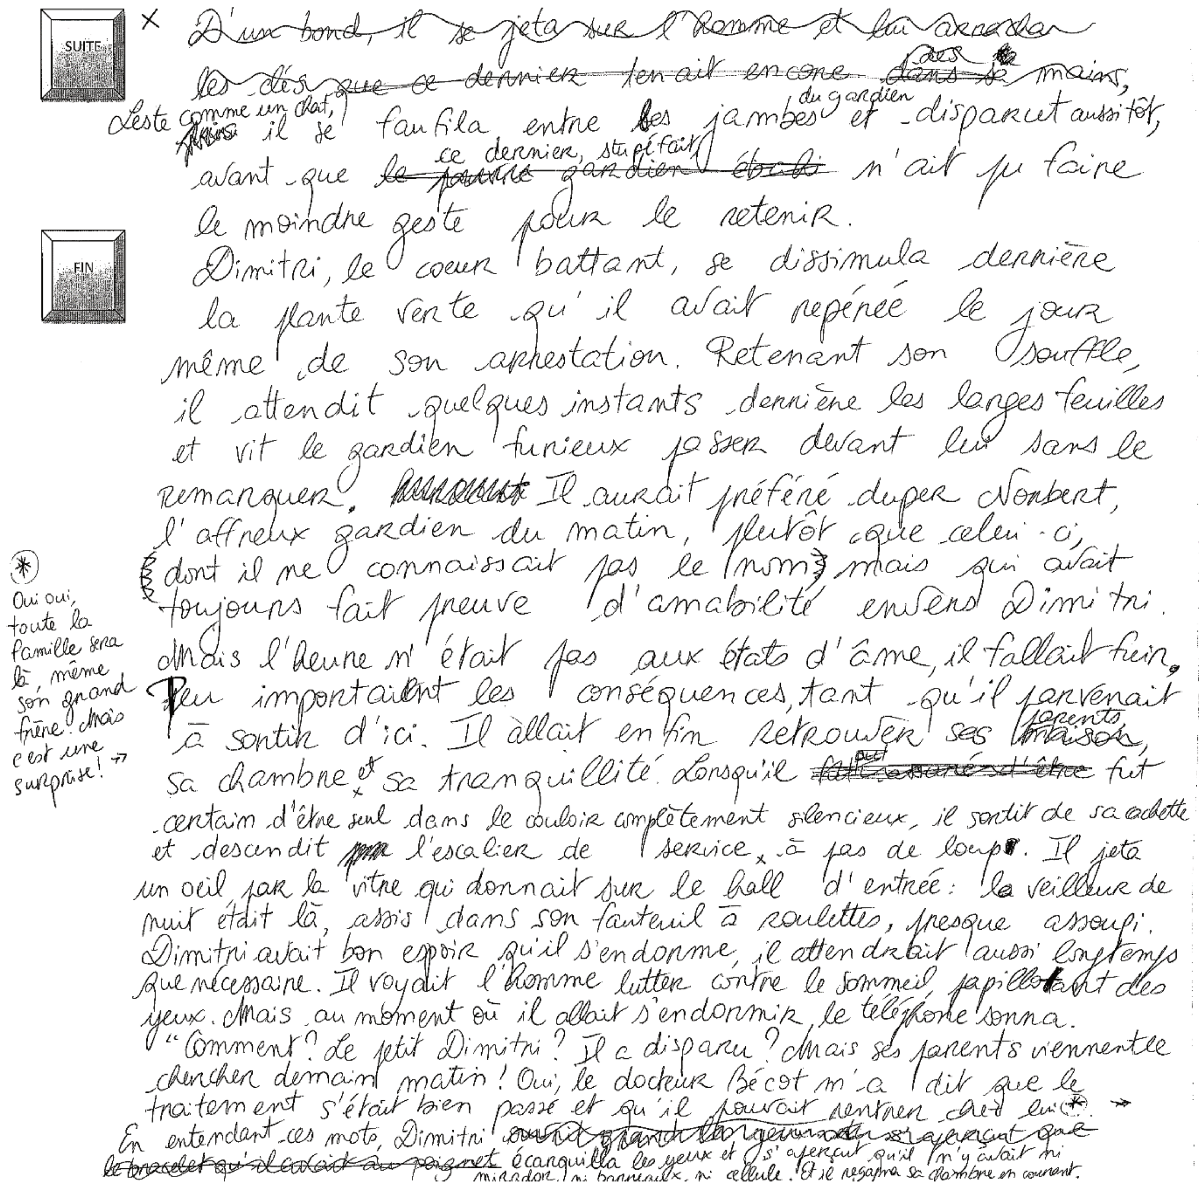 SUITE
x D'un bond, il se jeta sur l'homme et lui arracha
les dés que ce dernier tenait encore dans sa des mains,
Leste comme un chat, du gardien
il se faufila entre les jambes et disparut aussitôt,
ce dernier, stupéfait,
avant que le pauvre gardien ébahi n'ait pu faire
le moindre geste pour le retenir.
FIN
Dimitri, le coeur battant, se dissimula derrière
la plante verte qu'il avait repérée le jour
même de son arrestation. Retenant son souffle,
il attendit quelques instants derrière les larges feuilles
et vit le gardien furieux passer devant lui sans le
remarquer. Il aurait préféré duper Norbert,
l'affreux gardien du matin, plutôt que celui-ci,
dont il ne connaissait pas le nom, mais qui avait
toujours fait preuve d'amabilité envers Dimitri.
Mais l'heure n'était pas aux états d'âme, il fallait fuir.
Peu importaient les conséquences, tant qu'il parvenait
à sortir d'ici. Il allait enfin retrouver ses maison, parents,
sa chambre et sa tranquillité. Lorsqu'il fut
certain d'être seul dans le couloir complètement silencieux, il sortit de sa cachette
et descendit l'escalier de service, à pas de loup. Il jeta
un oeil par la vitre qui donnait sur le hall d'entrée : le veilleur de
nuit était là, assis dans son fauteuil à roulettes, presque assoupi.
Dimitri avait bon espoir qu'il s'endorme, il attendrait aussi longtemps
que nécessaire. Il voyait l'homme lutter contre le sommeil, papillotant des
yeux. Mais au moment où il allait s'endormir, le téléphone sonna.
"Comment ? Le petit Dimitri ? Il a disparu ? Mais ses parents viennent le
chercher demain matin ! Oui, le docteur Bécot m'a dit que le
traitement s'était bien passé et qu'il pouvait rentrer chez lui * . →
En entendant ces mots, Dimitri
le bracelet qu'il avait au poignet écarquilla les yeux et s'aperçut qu'il n'y avait ni
mirador, ni barreaux, ni cellule. Et il regagna sa chambre en courant.
*
Oui oui,
toute la
famille sera
là même
son grand
frère. Mais
c'est une
surprise ! →